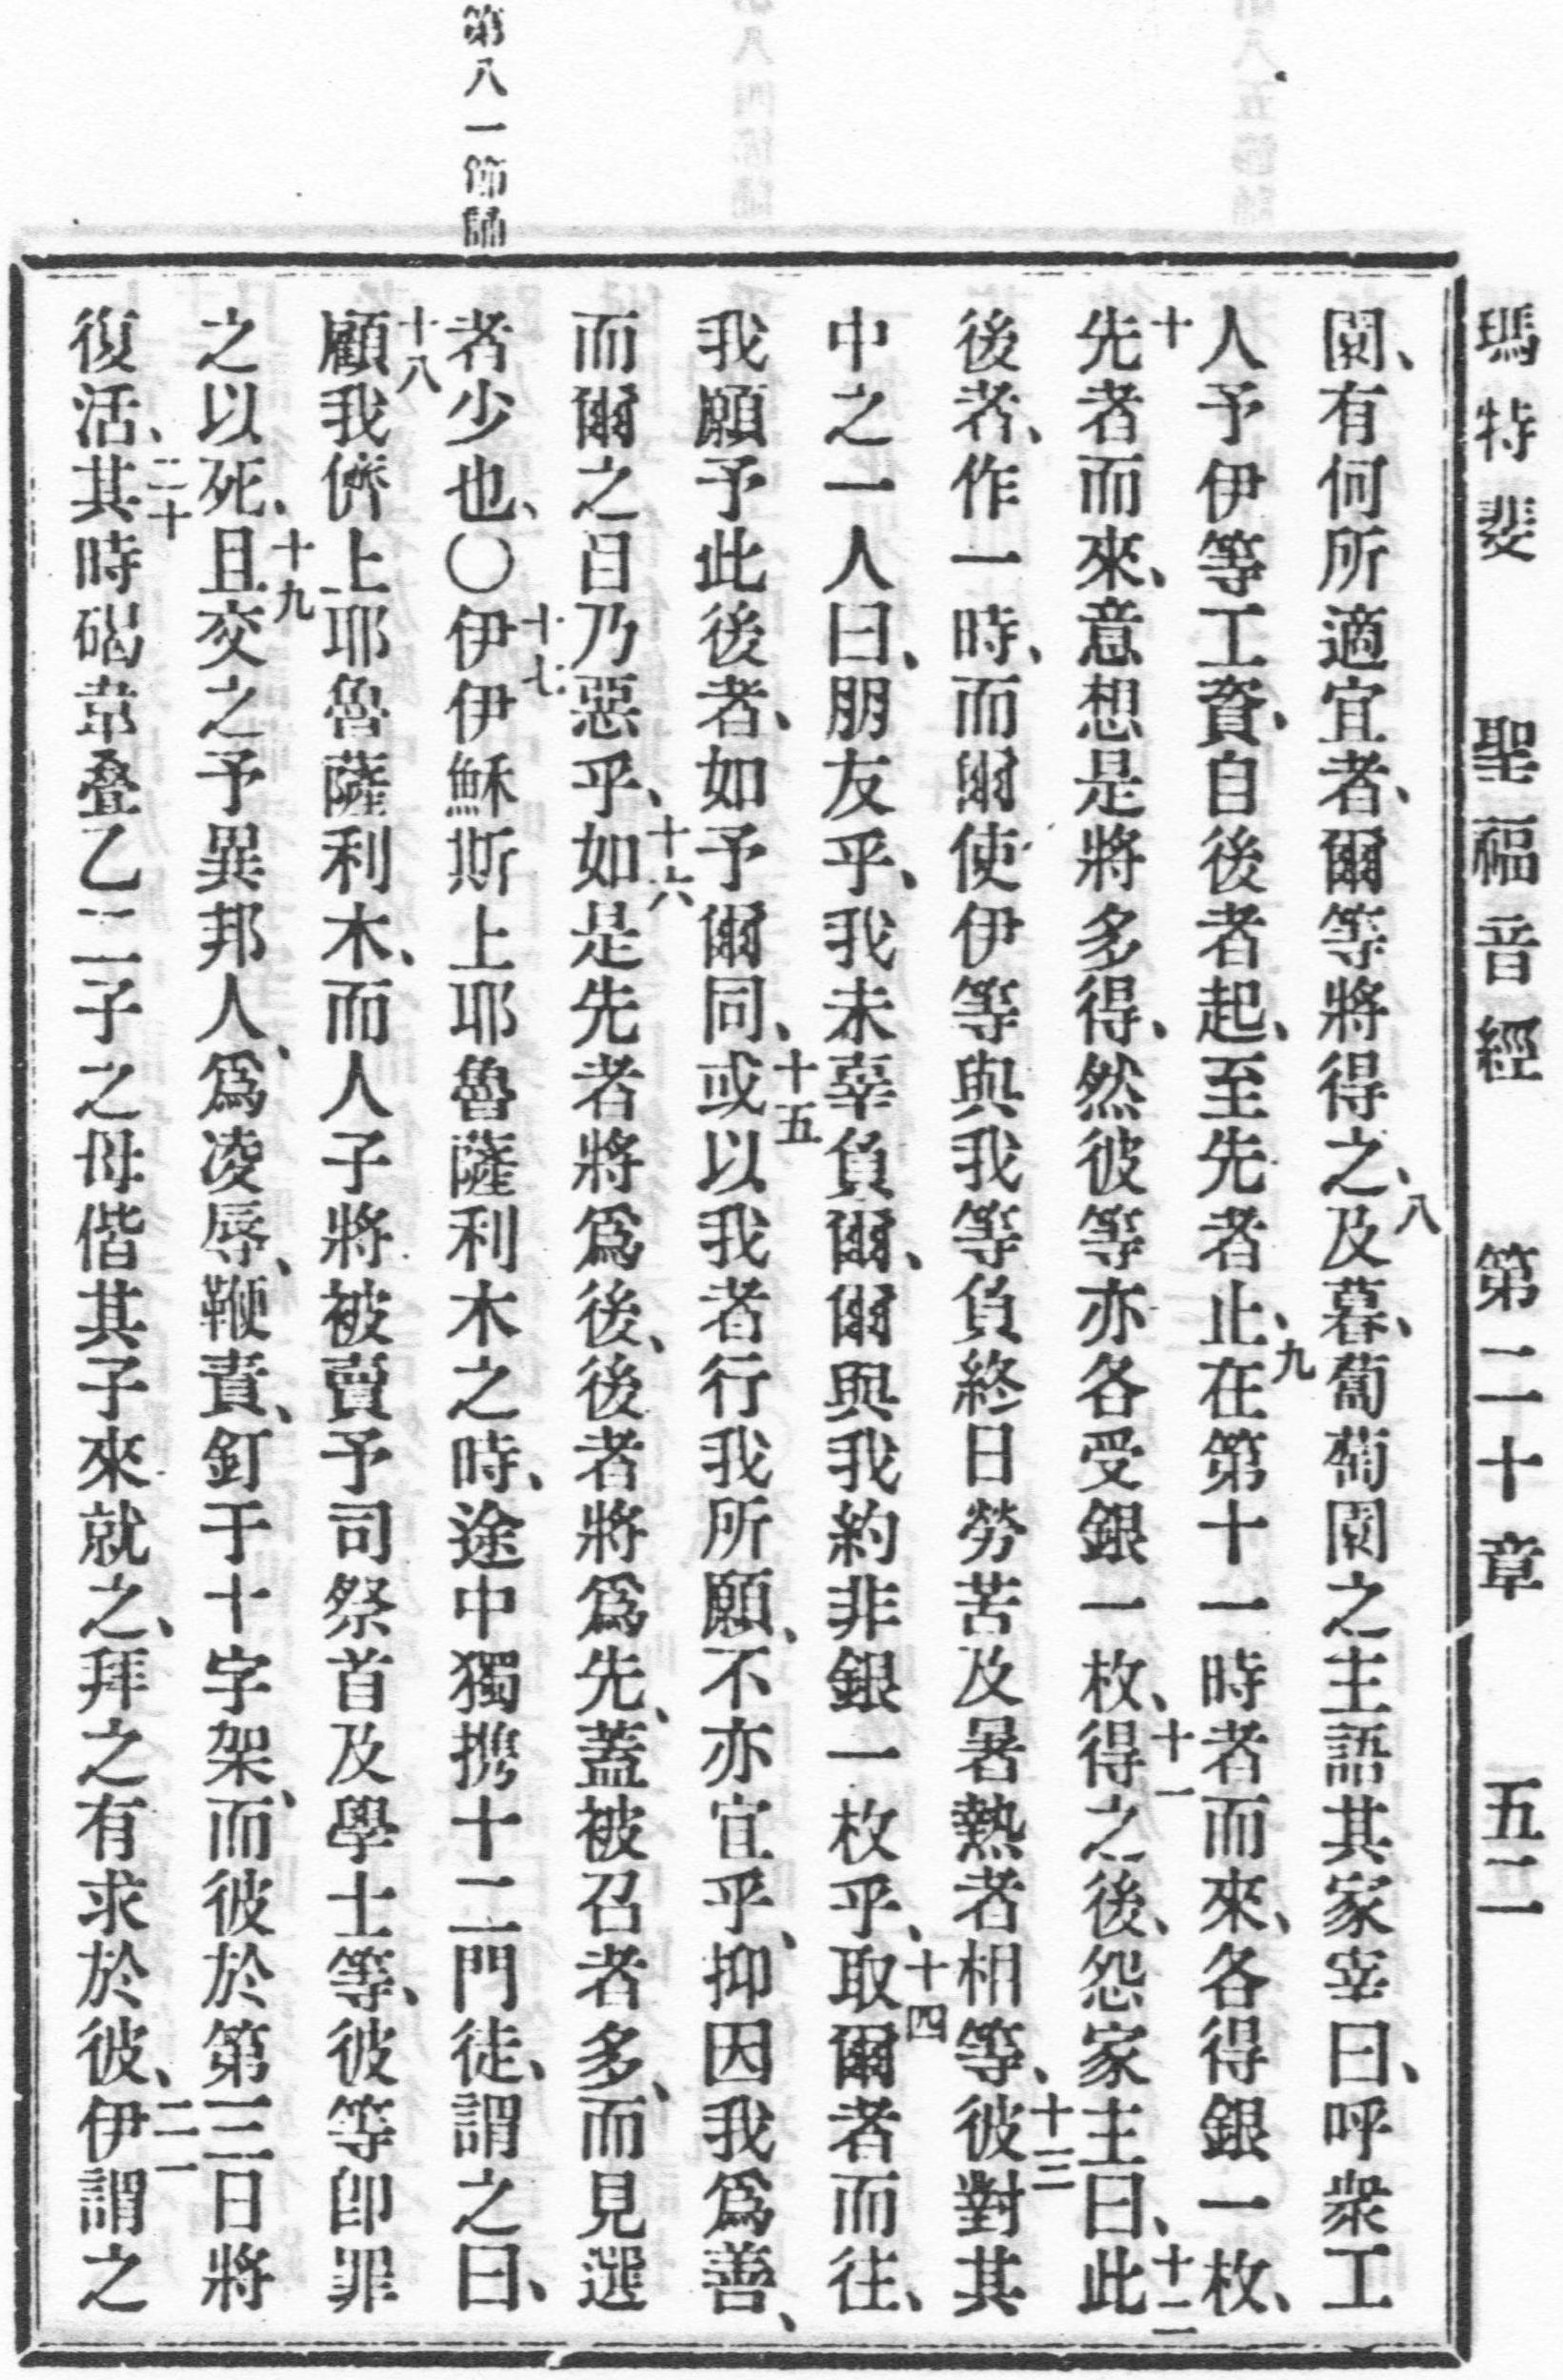 瑪特斐 聖福音經 第二十章 五二
園、有何所適宜者、爾等將得之、八及暮、葡萄園之主語其家宰曰、呼衆工
人予伊等工資、自後者起、至先者止、九在第十一時者而來、各得銀一枚、
十先者而來、意想是將多得、然彼等亦各受銀一枚、十一得之後、怨家主曰、十二此
後者、作一時、而爾使伊等與我等負終日勞苦及暑熱者相等、十三彼對其
中之一人曰、朋友乎、我未辜負爾、爾與我約非銀一枚乎、十四取爾者而往、
我願予此後者、如予爾同、十五或以我者行我所願、不亦宜乎、抑因我爲善、
而爾之目乃惡乎、十六如是先者將爲後、後者將爲先、蓋被召者多、而見選
第八一節誦
者少也、〇十七伊伊穌斯上耶魯薩利木之時、途中獨携十二門徒、謂之曰、
十八顧我儕上耶魯薩利木、而人子將被賣予司祭首及學士等、彼等卽罪
之以死、十九且交之予異邦人、爲凌辱、鞭責、釘于十字架、而彼於第三日將
復活、二十其時碣韋疊乙二子之母偕其子來就之、拜之有求於彼、二一伊謂之